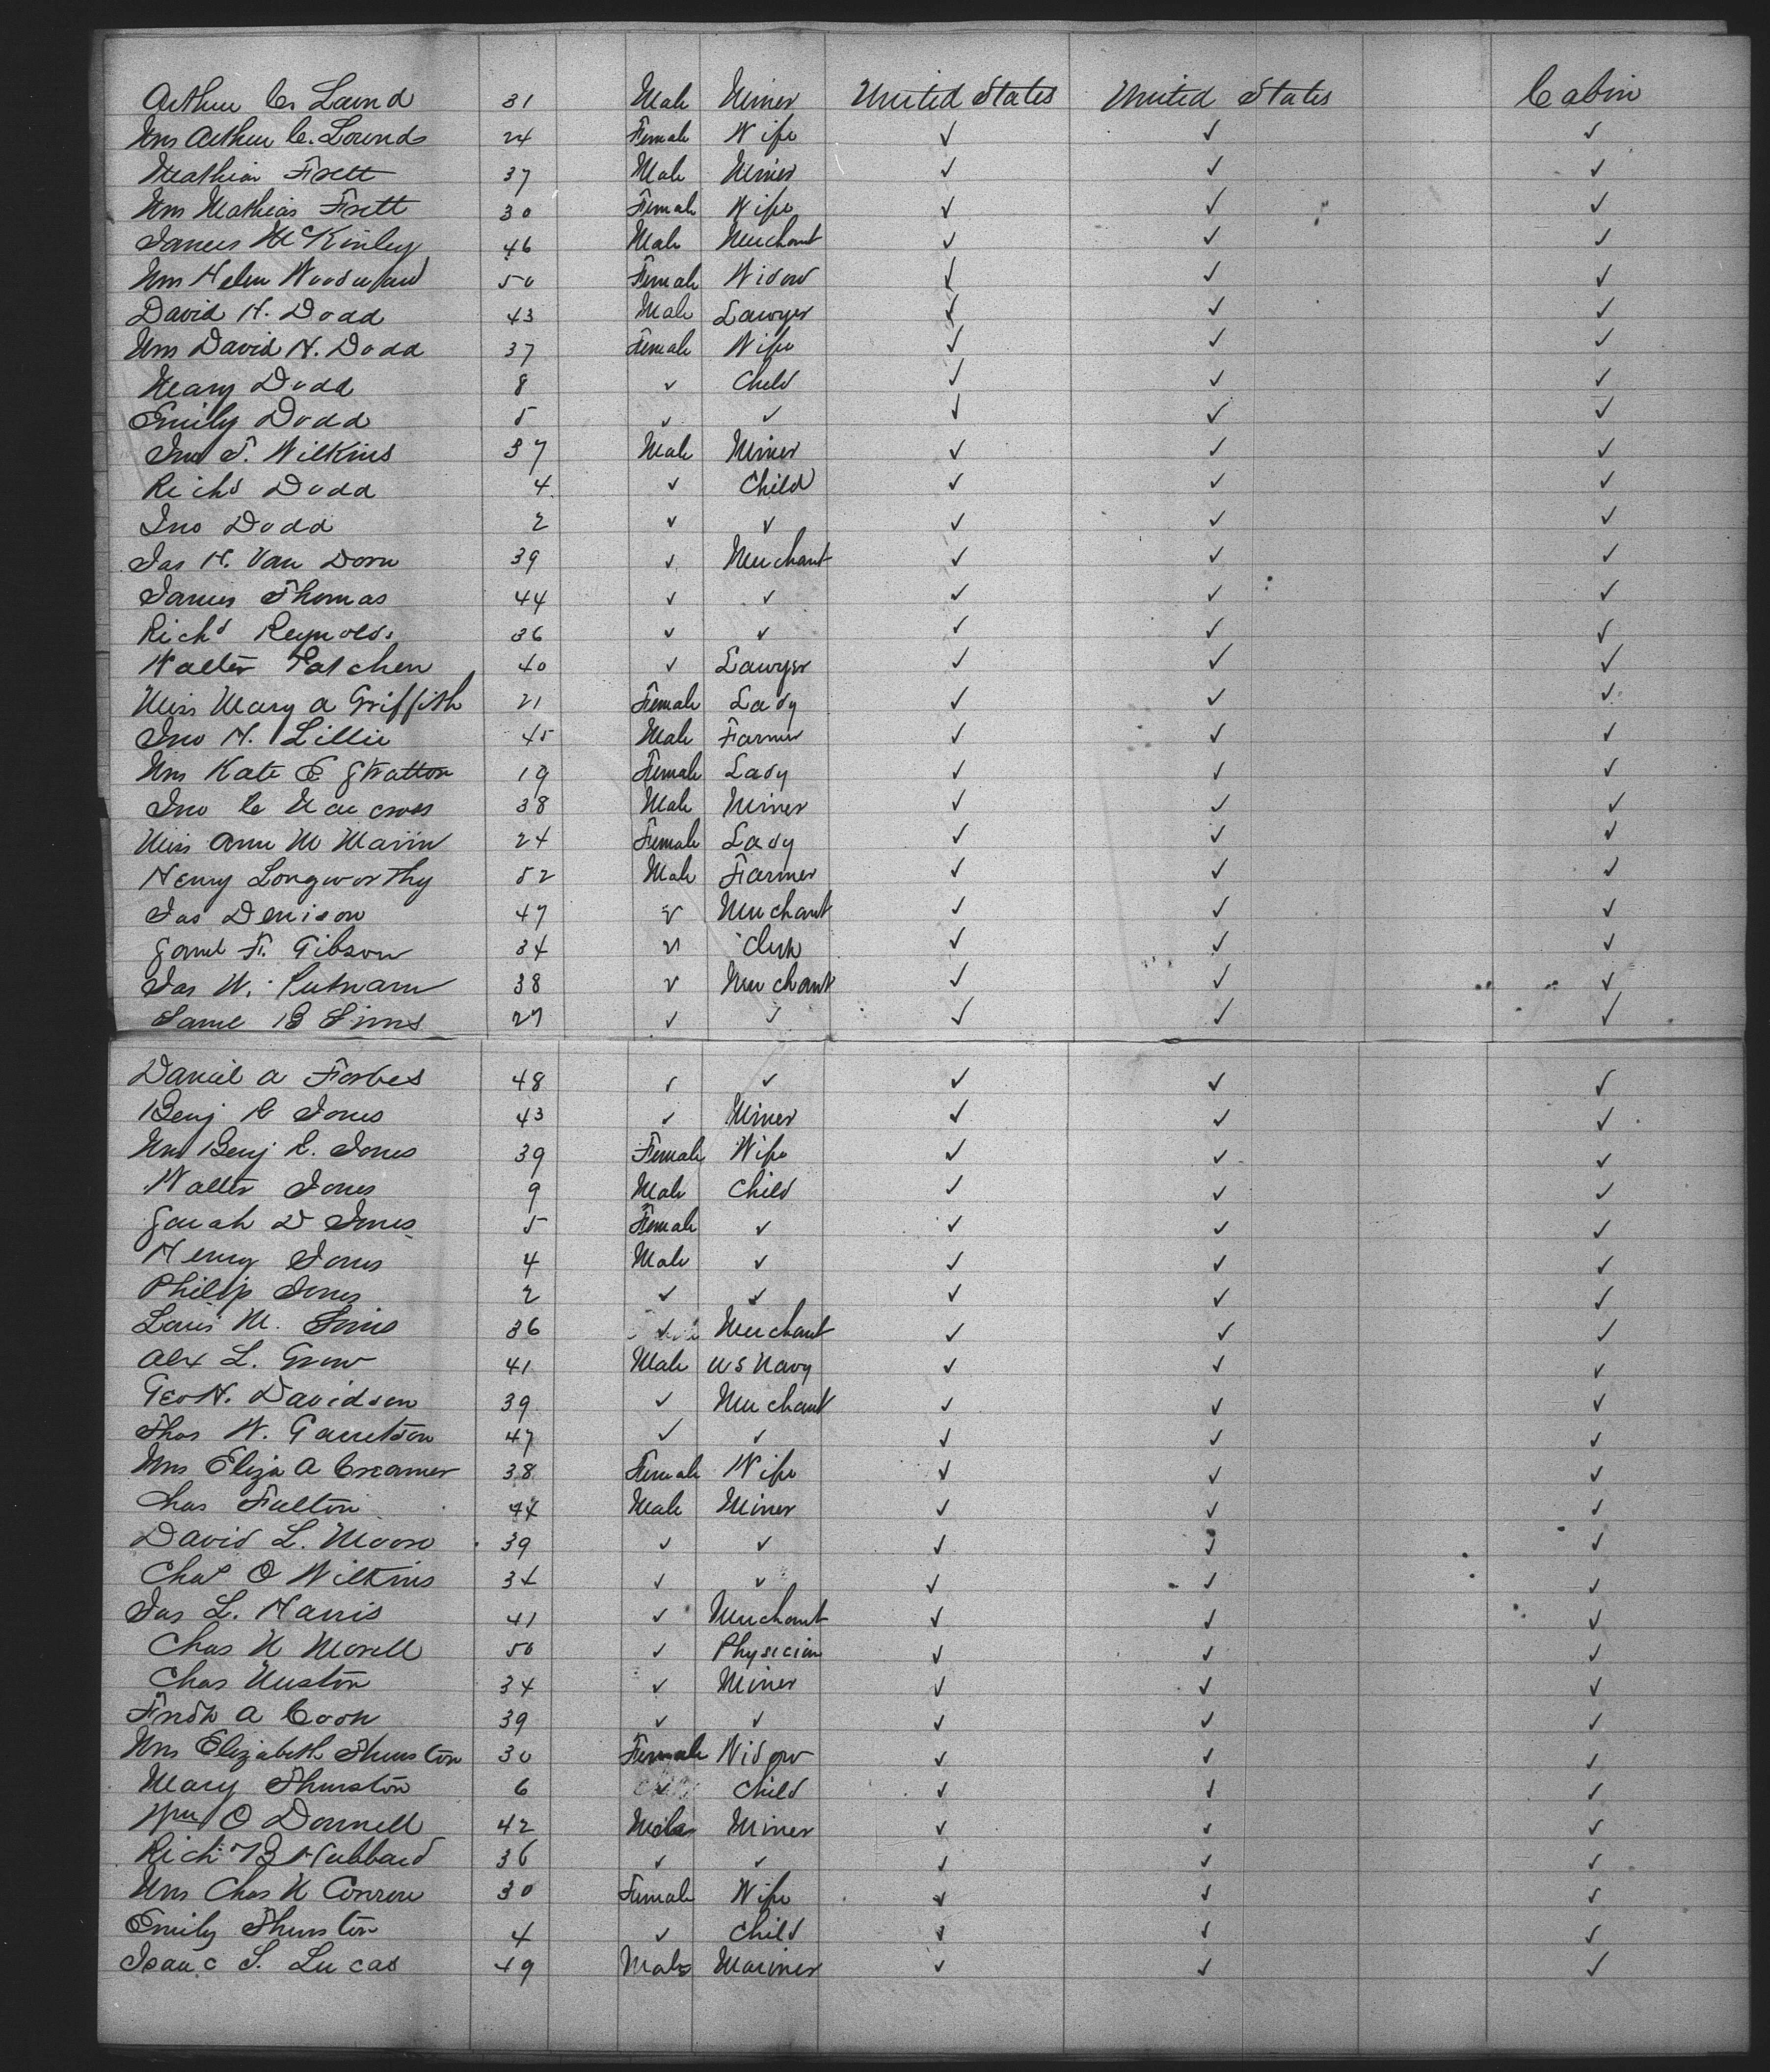 Arthur C. Lound 31 Male Miner United States United States Cabin
Mrs Arthur C. Lounds 24 Female Wife ✓ ✓ ✓
Mathias Frett 37 Male Miner ✓ ✓ ✓
Mrs Mathias Frett 30 Female Wife ✓ ✓ ✓
James McKinley 46 Male Merchant ✓ ✓ ✓
Mrs Helen Woodward 50 Female Widow ✓ ✓ ✓
David H. Dodd 43 Male Lawyer ✓ ✓ ✓
Mrs David H. Dodd 37 Female Wife ✓ ✓ ✓
Mary Dodd 8 ✓ Child ✓ ✓ ✓
Emily Dodd 5 ✓ ✓ ✓ ✓ ✓
Jno T. Wilkins 37 Male Miner ✓ ✓ ✓
Richd Dodd 4 ✓ Child ✓ ✓ ✓
Jno Dodd 2 ✓ ✓ ✓ ✓ ✓
Jas H. Van Dorn 39 ✓ Merchant ✓ ✓ ✓
James Thomas 44 ✓ ✓ ✓ ✓ ✓
Richd Reynolds 36 ✓ ✓ ✓ ✓ ✓
Walter Patchen 40 ✓ Lawyer ✓ ✓ ✓
Miss Mary A Griffith 21 Female Lady ✓ ✓ ✓
Jno H. Lillie 45 Male Farmer ✓ ✓ ✓
Mrs Kate E Stratton 19 Female Lady ✓ ✓ ✓
Jno C 38 Male Miner ✓ ✓ ✓
Miss Ann M Marin 24 Female Lady ✓ ✓ ✓
Henry Longworthy 52 Male Farmer ✓ ✓ ✓
Jas Denison 47 ✓ Merchant ✓ ✓ ✓
Saml F. Gibson 34 ✓ Clerk ✓ ✓ ✓
Jas W. Putnam 38 ✓ Merchant ✓ ✓ ✓
Saml B Sims 27 ✓ ✓ ✓ ✓ ✓
Daniel A Forbes 48 ✓ ✓ ✓ ✓ ✓
Benj R Jones 43 ✓ Miner ✓ ✓ ✓
Mrs Benj R. Jones 39 Female Wife ✓ ✓ ✓
Walter Jones 9 Male Child ✓ ✓ ✓
Sarah D Jones 5 Female ✓ ✓ ✓ ✓
Henry Jones 4 Male ✓ ✓ ✓ ✓
Philip Jones 2 ✓ ✓ ✓ ✓ ✓
Louis M. Sims 36 ✓ Merchant ✓ ✓ ✓
Alex L. Grow 41 Male US Navy ✓ ✓ ✓
Geo H. Davidson 39 ✓ Merchant ✓ ✓ ✓
Thos W. Garretson 47 ✓ ✓ ✓ ✓ ✓
Mrs Eliza A Creamer 38 Female Wife ✓ ✓ ✓
Chas Fulton 44 Male Miner ✓ ✓ ✓
David L. Moore 39 ✓ ✓ ✓ ✓ ✓
Chas O Wilkins 34 ✓ ✓ ✓ ✓ ✓
Jas L. Harris 41 ✓ Merchant ✓ ✓ ✓
Chas H Morell 50 ✓ Physician ✓ ✓ ✓
Chas Huston 34 ✓ Miner ✓ ✓ ✓
Fredk A Cook 39 ✓ ✓ ✓ ✓ ✓
Mrs Elizabeth Thurston 30 Female Widow ✓ ✓ ✓
Mary Thurston 6 ✓ Child ✓ ✓ ✓
Wm O Donnell 42 Male Miner ✓ ✓ ✓
Richd B Hubbard 36 ✓ ✓ ✓ ✓ ✓
Mrs Chas H Conrow 30 Female Wife ✓ ✓ ✓
Emily Thurston 4 ✓ Child ✓ ✓ ✓
Isaac S. Lucas 49 Male Mariner ✓ ✓ ✓